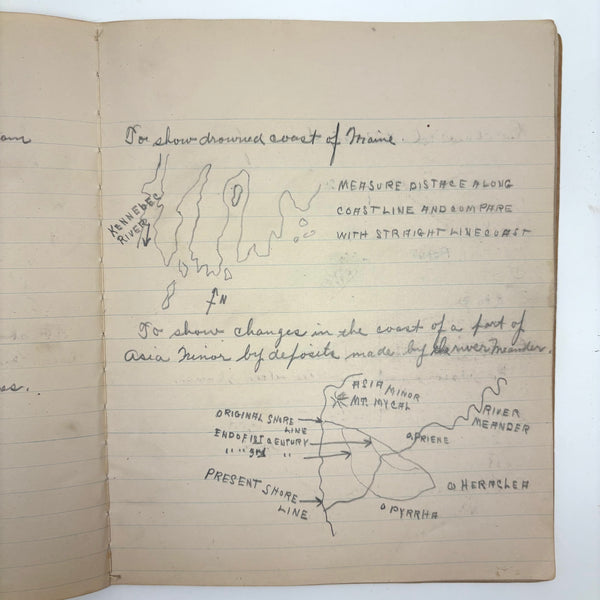 To show drowned coast of Maine.
KENNEBEC
RIVER
MEASURE DISTACE ALONG
COASTLINE AND COMPARE
WITH STRAIGHT LINE COAST
N
To show changes in the coast of a part of
Asia Minor by deposits made by river Meander.
ASIA MINOR
MT. MYCAL
ORIGINAL SHORE
LINE
RIVER
MEANDER
END OF 1ST CENTURY
PRIENE
" " 3rd "
PRESENT SHORE
LINE
HERACLEA
PYRRHA